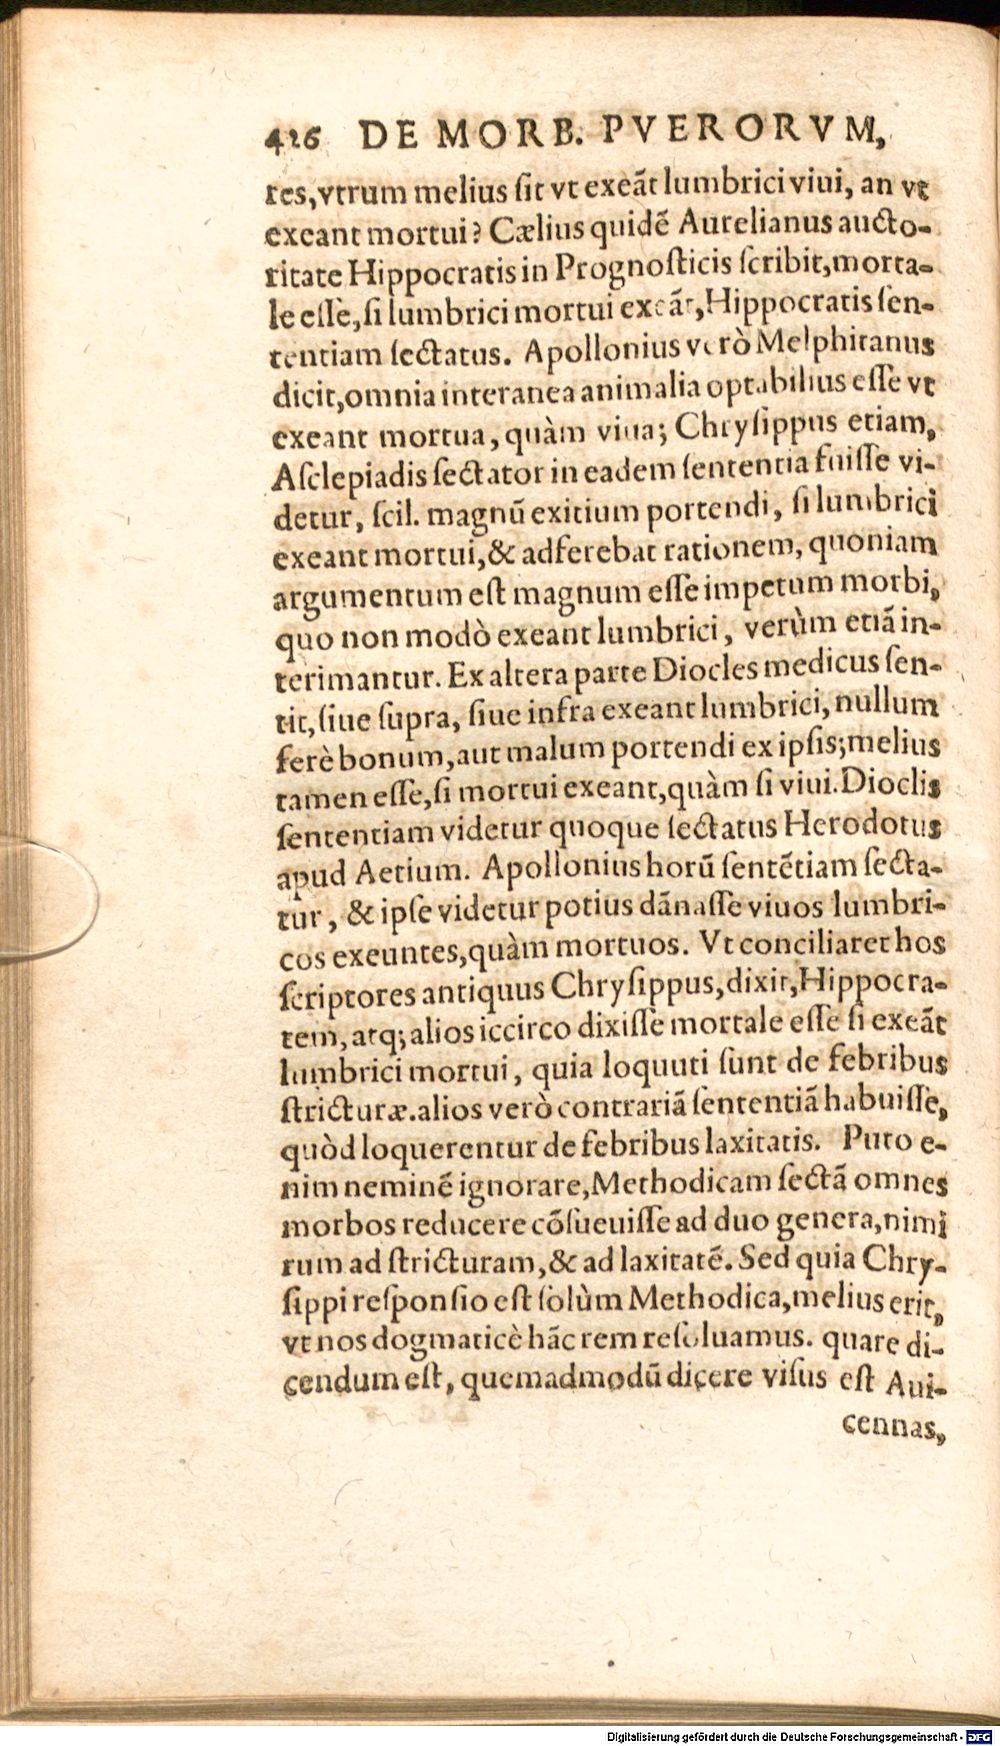 426 DE MORB. PVERORVM,
res, vtrum melius ſit vt exeãt lumbrici viui, an vt
exeant mortui? Cælius quidẽ Aurelianus aucto-
ritate Hippocratis in Prognoſticis ſcribit, morta-
le eſſe, ſi lumbrici mortui exeãt, Hippocratis ſen-
tentiam ſectatus. Apollonius verò Melphitanus
dicit, omnia interanea animalia optabilius eſſe vt
exeant mortua, quàm viua; Chryſippus etiam,
Aſclepiadis ſectator in eadem ſententia fuiſſe vi-
detur, ſcil. magnũ exitium portendi, ſi lumbrici
exeant mortui, & adferebat rationem, quoniam
argumentum eſt magnum eſſe impetum morbi,
quo non modò exeant lumbrici, verùm etiã in-
terimantur. Ex altera parte Diocles medicus ſen-
tit, ſiue ſupra, ſiue infra exeant lumbrici, nullum
ferè bonum, aut malum portendi ex ipſis; melius
tamen eſſe, ſi mortui exeant, quàm ſi viui. Dioclis
ſententiam videtur quoque ſectatus Herodotus
apud Aetium. Apollonius horũ ſentẽtiam ſecta-
tur, & ipſe videtur potius dãnaſſe viuos lumbri-
cos exeuntes, quàm mortuos. Vt conciliaret hos
ſcriptores antiquus Chryſippus, dixit, Hippocra-
tem, atq; alios iccirco dixiſſe mortale eſſe ſi exeãt
lumbrici mortui, quia loquuti ſunt de febribus
ſtricturæ. alios verò contrariã ſententiã habuiſſe,
quòd loquerentur de febribus laxitatis. Puto e-
nim neminẽ ignorare, Methodicam ſectã omnes
morbos reducere cõſueuiſſe ad duo genera, nimi
rum ad ſtricturam, & ad laxitatẽ. Sed quia Chry-
ſippi reſponſio eſt ſolùm Methodica, melius erit,
vt nos dogmaticè hãc rem reſoluamus. quare di-
cendum eſt, quemadmodũ dicere viſus eſt Aui-
cennas,
Digitalisierung gefördert durch die Deutsche Forschungsgemeinschaft - DFG